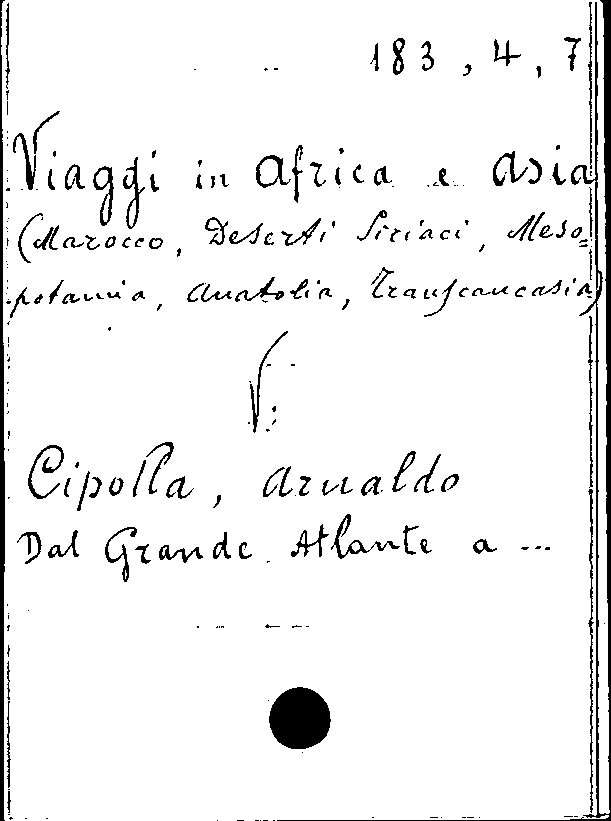 183, 4, 7
Viaggi in Africa e Asia
(Marocco, Deserti Siriaci, Meso=
potamia, Anatolia, Transcaucasia)
V:
Cipolla, Arnaldo
Dal Grande Atlante a ...